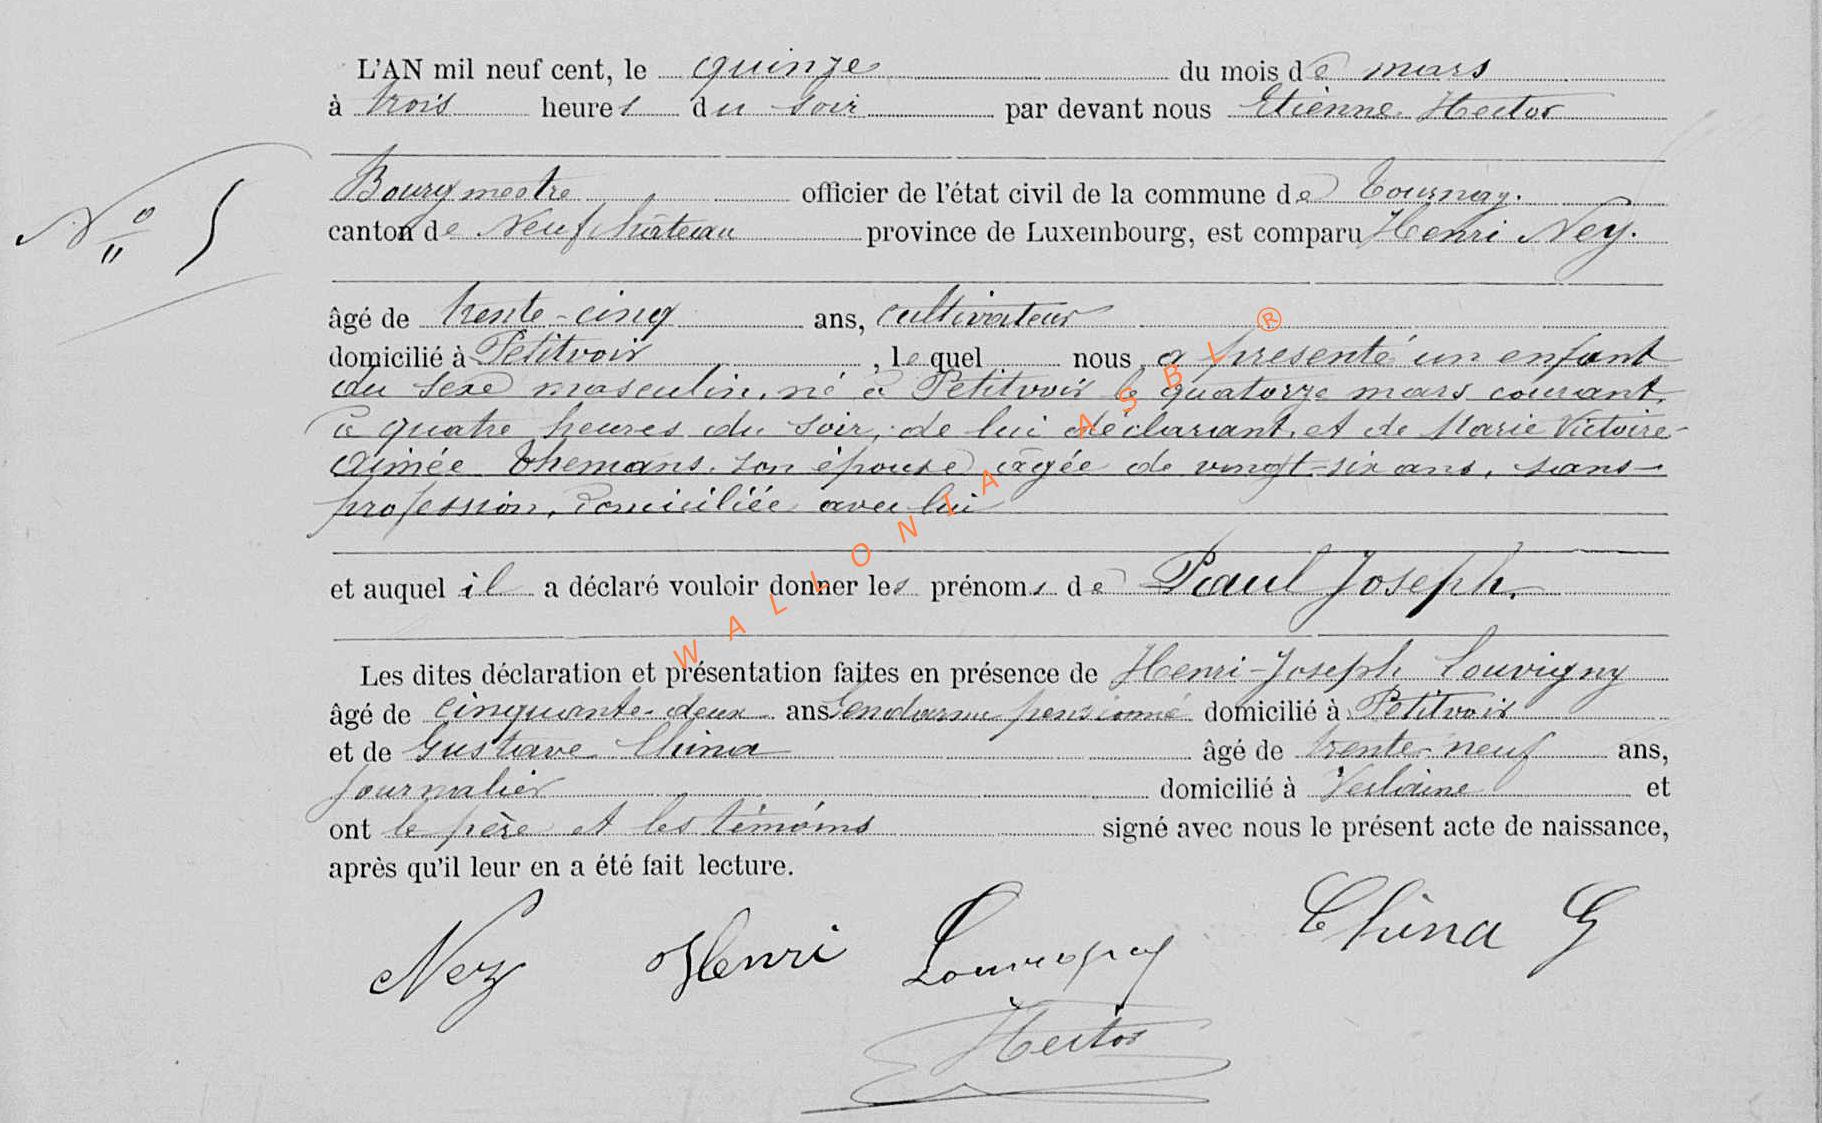 L'AN mil neuf cent, le quinze du mois de mars
à trois heures du soir par devant nous Etienne Hector
Bourgmestre officier de l'état civil de la commune de Tournay.
N° 5
canton de Neufchâteau province de Luxembourg, est comparu Henri Ney.
âgé de trente-cinq ans, cultivateur
domicilié à Petitvoir, lequel nous a présenté un enfant
du sexe masculin, né à Petitvoir le quatorze mars courant,
à quatre heures du soir, de lui déclarant, et de Marie Victoire
Aimée Themans, son épouse âgée de vingt-six ans, sans
profession, domiciliée avec lui
et auquel il a déclaré vouloir donner les prénoms de Paul Joseph.
Les dites déclaration et présentation faites en présence de Henri-Joseph Louvigny
âgé de cinquante-deux ans Gendarme pensionné domicilié à Petitvoir
et de Gustave China âgé de trente-neuf ans,
Journalier domicilié à Verlaine et
ont le père et les témoins signé avec nous le présent acte de naissance,
après qu'il leur en a été fait lecture.
Ney Henri Louvigny China G
Hector
WALLONIA ASBL ®